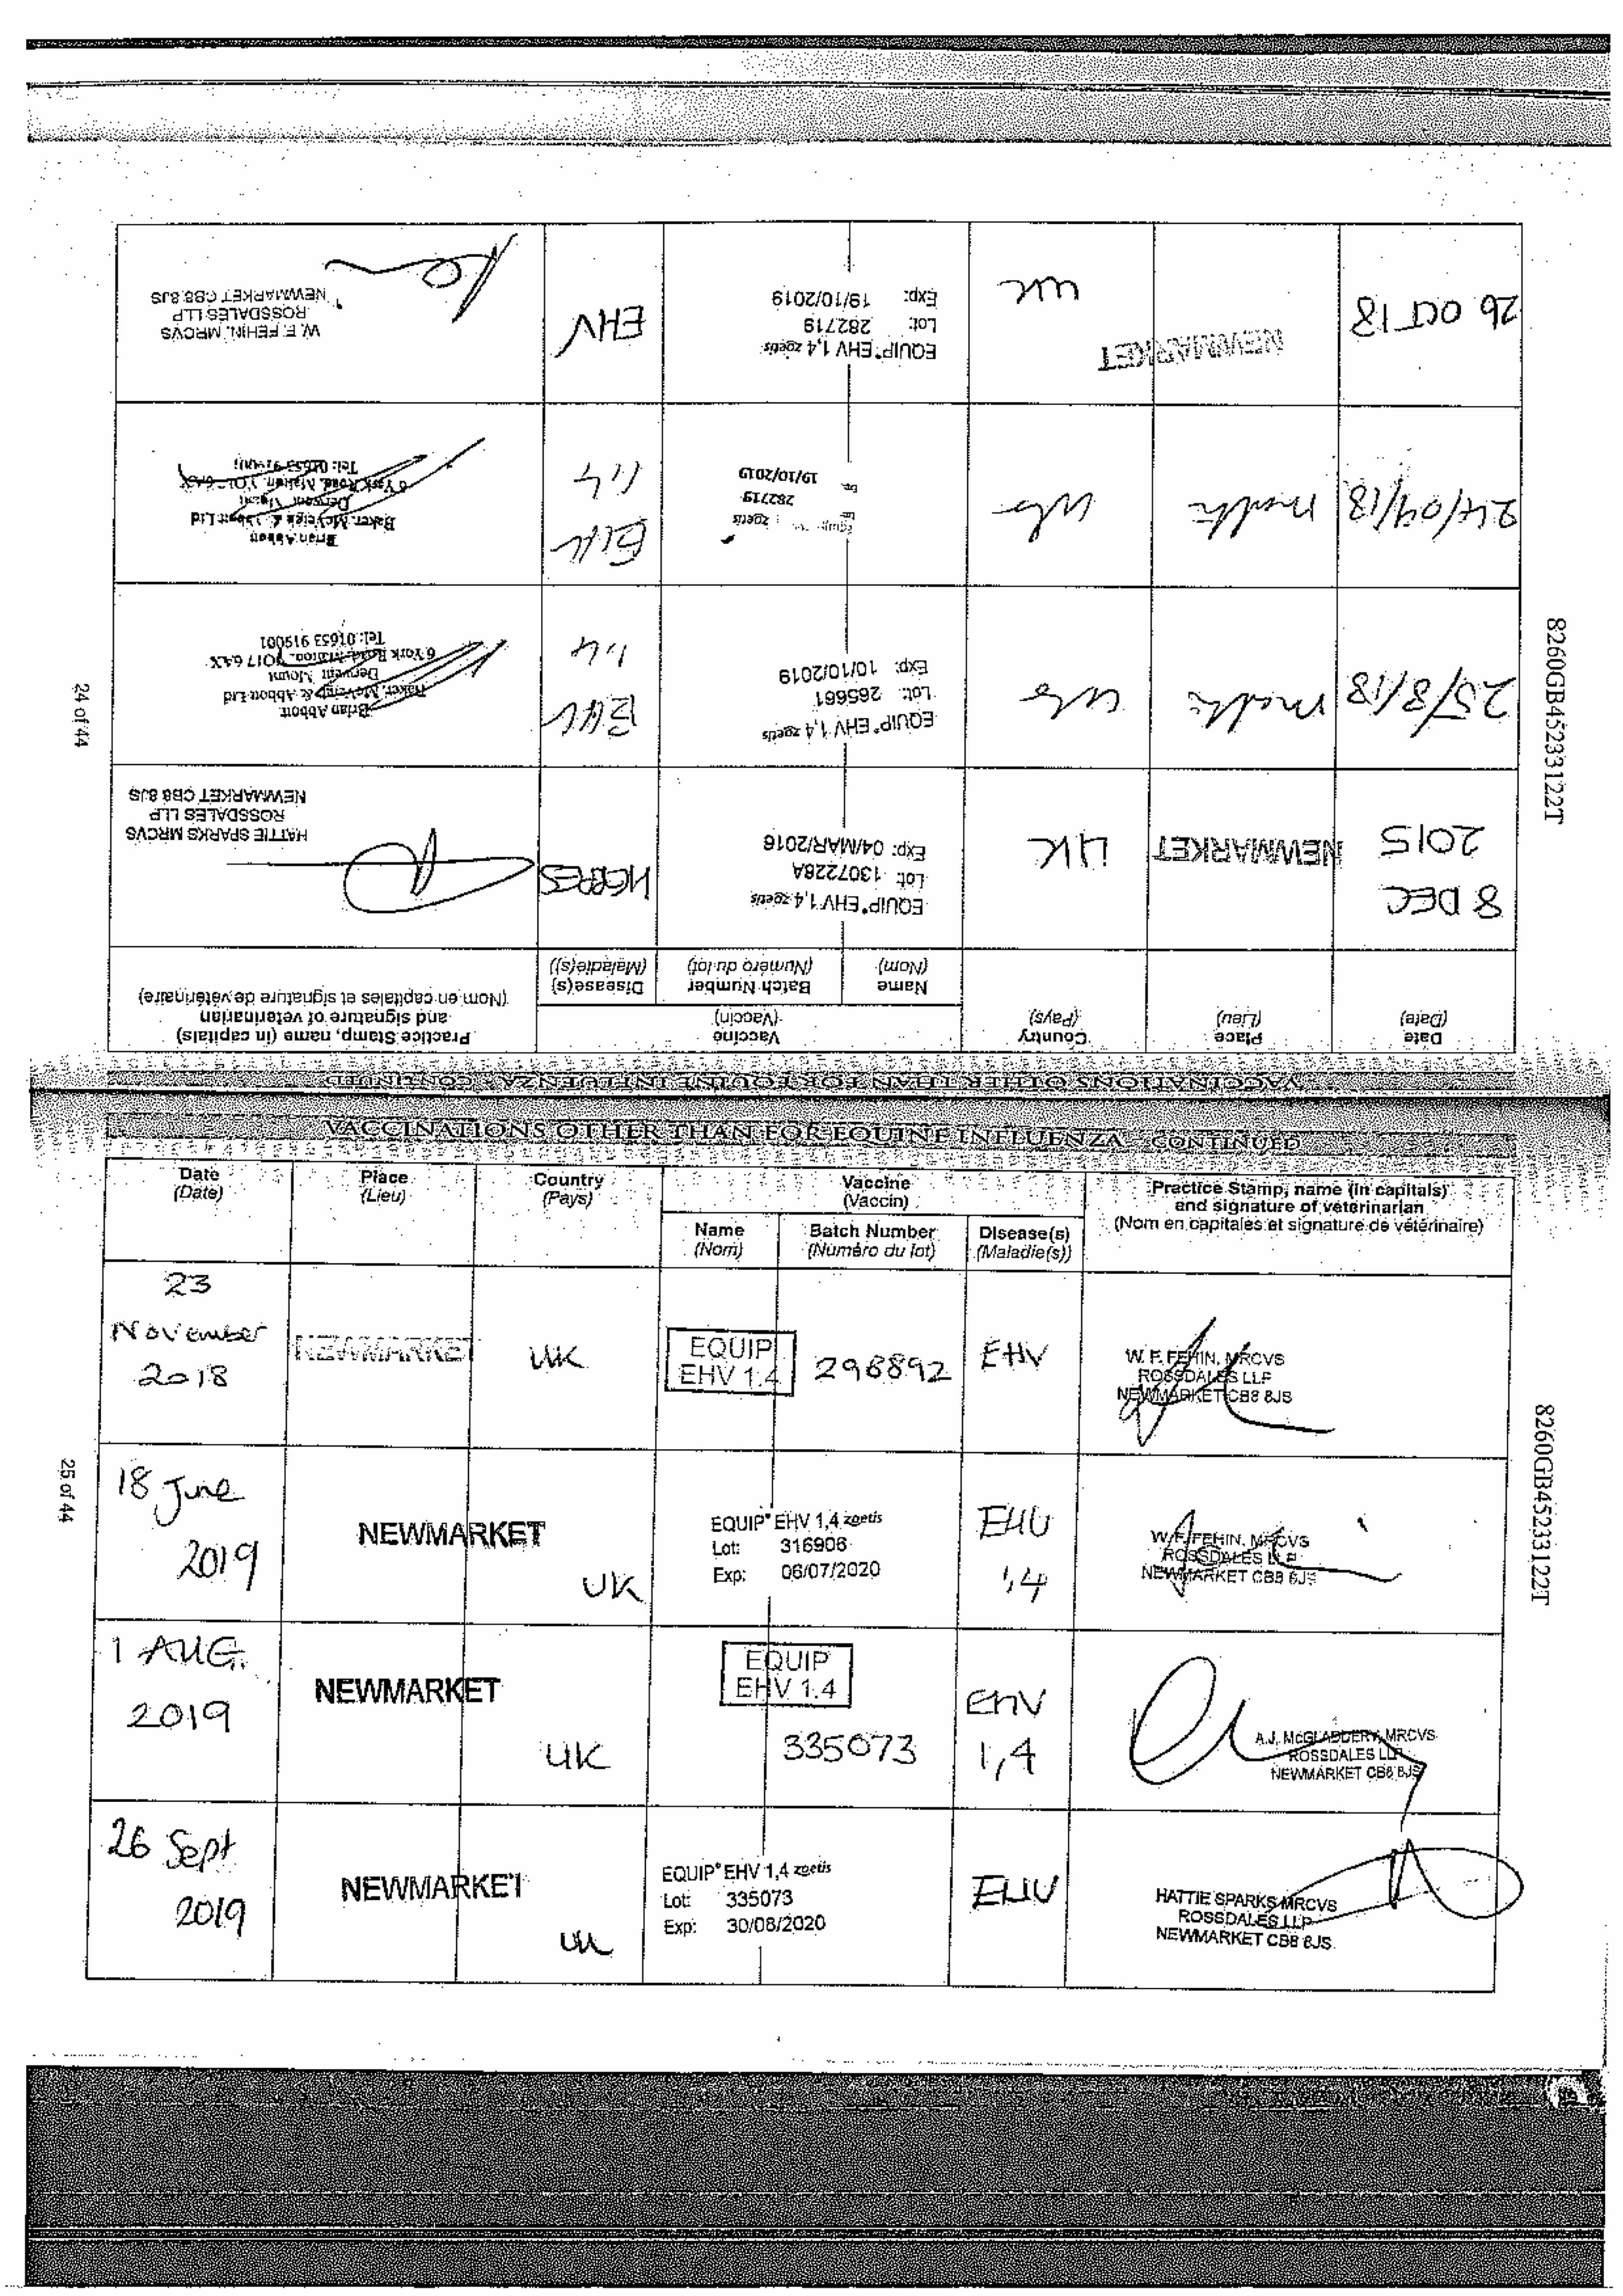 24 of 44
8260GB45233122T
VACCINATIONS OTHER THAN FOR EQUINE INFLUENZA - CONTINUED
Date
(Date)
Place
(Lieu)
Country
(Pays)
Vaccine
(Vaccin)
Name
(Nom)
Batch Number
(Numéro du lot)
Disease(s)
(Maladie(s))
Practice Stamp, name (in capitals)
and signature of veterinarian
(Nom en capitales et signature de vétérinaire)
8 DEC
2015
NEWMARKET
UK
EQUIP® EHV 1,4 zoetis
Lot: 1307228A
Exp: 04/MAR/2016
HERPES
HATTIE SPARKS MRCVS
ROSSDALES LLP
NEWMARKET CB8 8JS
25/8/18
EQUIP® EHV 1,4 zoetis
Lot: 265661
Exp: 10/10/2019
EHV
1,4
Brian Abbott
Baker, McVeigh & Abbott Ltd
Derwent Mount
6 York Road, Malton, YO17 6AX
Tel: 01653 919001
24/09/18
Equip zoetis
282719
19/10/2019
EHV
1,4
Brian Abbott
Baker, McVeigh & Abbott Ltd
Derwent Mount
6 York Road, Malton, YO17 6AX
Tel: 01653 919001
26 OCT 18
NEWMARKET
UK
EQUIP® EHV 1,4 zoetis
Lot: 282719
Exp: 19/10/2019
EHV
W. F. FEHIN, MRCVS
ROSSDALES LLP
NEWMARKET CB8 8JS
VACCINATIONS OTHER THAN FOR EQUINE INFLUENZA - CONTINUED
Date
(Date)
Place
(Lieu)
Country
(Pays)
Vaccine
(Vaccin)
Name
(Nom)
Batch Number
(Numéro du lot)
Disease(s)
(Maladie(s))
Practice Stamp, name (in capitals)
and signature of veterinarian
(Nom en capitales et signature de vétérinaire)
23
November
2018
NEWMARKET
UK
EQUIP
EHV 1.4
296892
EHV
W. F. FEHIN, MRCVS
ROSSDALES LLP
NEWMARKET CB8 8JS
18 June
2019
NEWMARKET
UK
EQUIP® EHV 1,4 zoetis
Lot: 316906
Exp: 06/07/2020
EHV
1,4
W. F. FEHIN, MRCVS
ROSSDALES LLP
NEWMARKET CB8 8JS
1 AUG.
2019
NEWMARKET
UK
EQUIP
EHV 1.4
335073
EHV
1,4
A.J. McGLADDERY, MRCVS
ROSSDALES LLP
NEWMARKET CB8 8JS
26 Sept
2019
NEWMARKET
UK
EQUIP® EHV 1,4 zoetis
Lot: 335073
Exp: 30/08/2020
EHV
HATTIE SPARKS MRCVS
ROSSDALES LLP
NEWMARKET CB8 8JS
25 of 44
8260GB45233122T